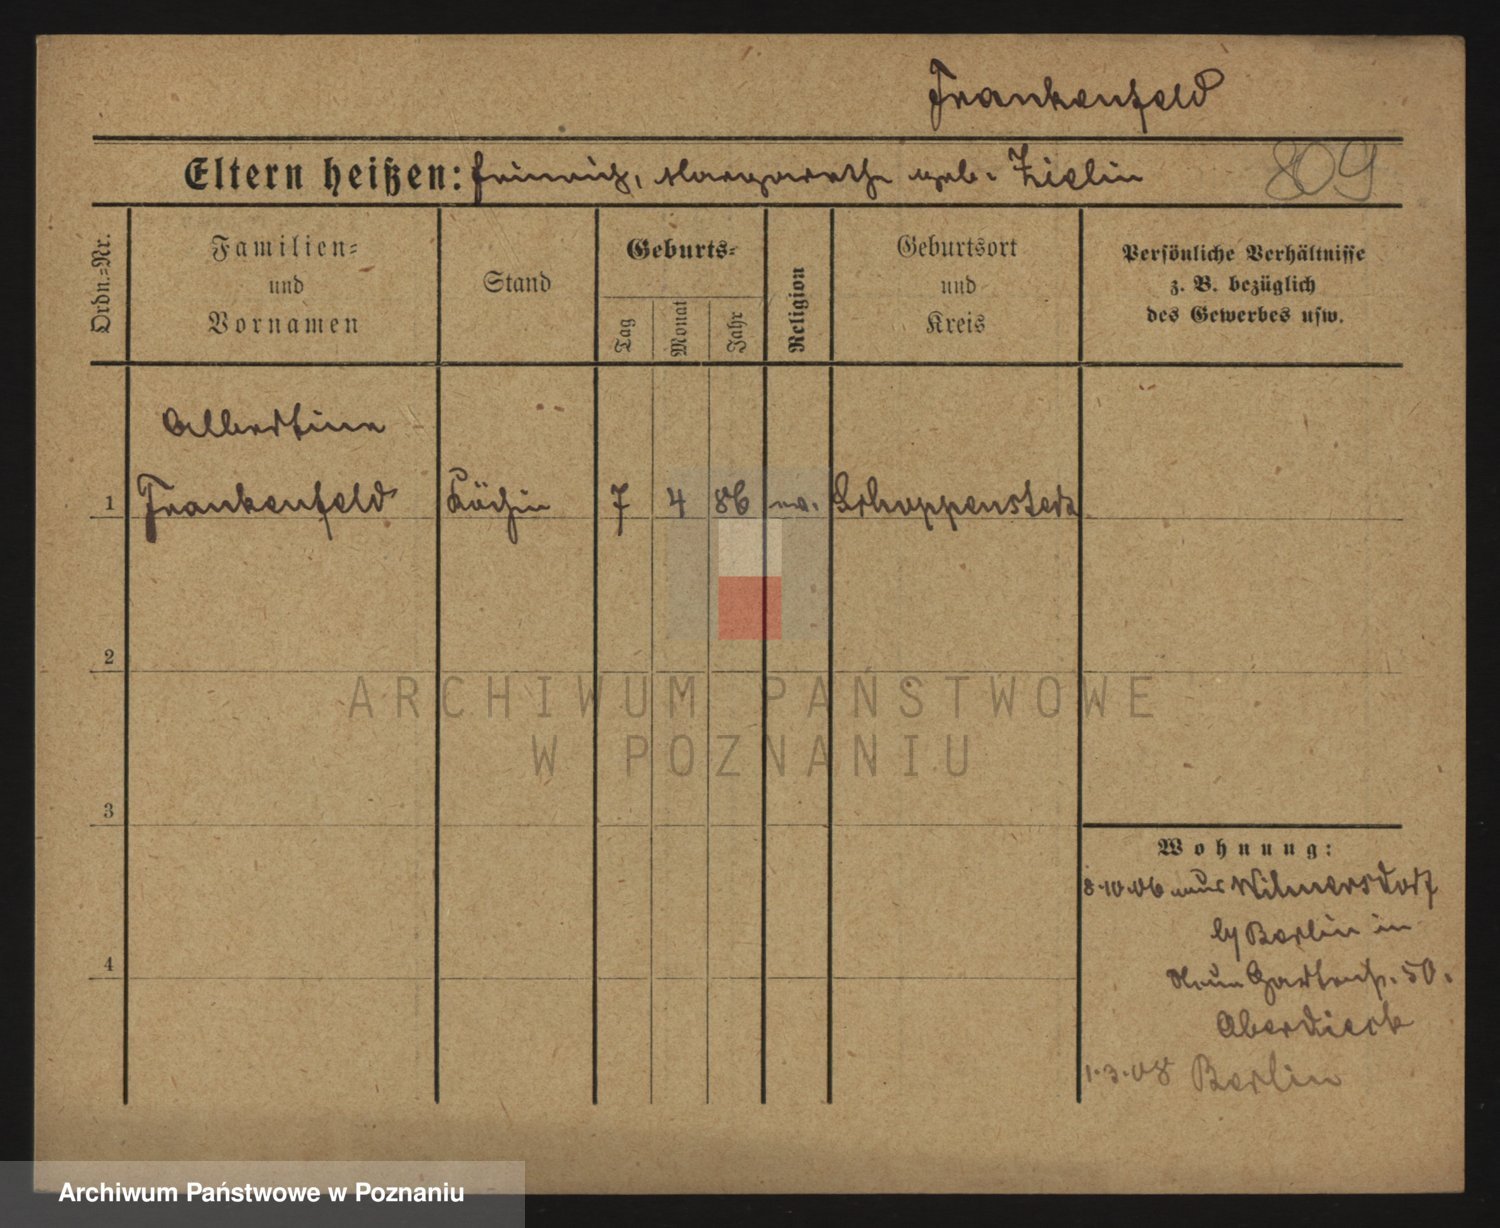 Frankenfeld
Eltern heißen: Heinrich, Margarethe geb. Zielin
809
Ordn.=Nr.
Familien=
und
Vornamen
Stand
Geburts=
Tag
Monat
Jahr
Religion
Geburtsort
und
Kreis
Persönliche Verhältnisse
z. B. bezüglich
des Gewerbes usw.
Albertine
1 Frankenfeld Köchin 7 4 86 ev. Schoppenstedt
2
3
4
Wohnung:
8.10.06 aus Wilmersdorf
b/ Berlin in
Neue Gartenstr. 50.
Aberdieck
1.3.08 Berlin
ARCHIWUM PAŃSTWOWE
W POZNANIU
Archiwum Państwowe w Poznaniu